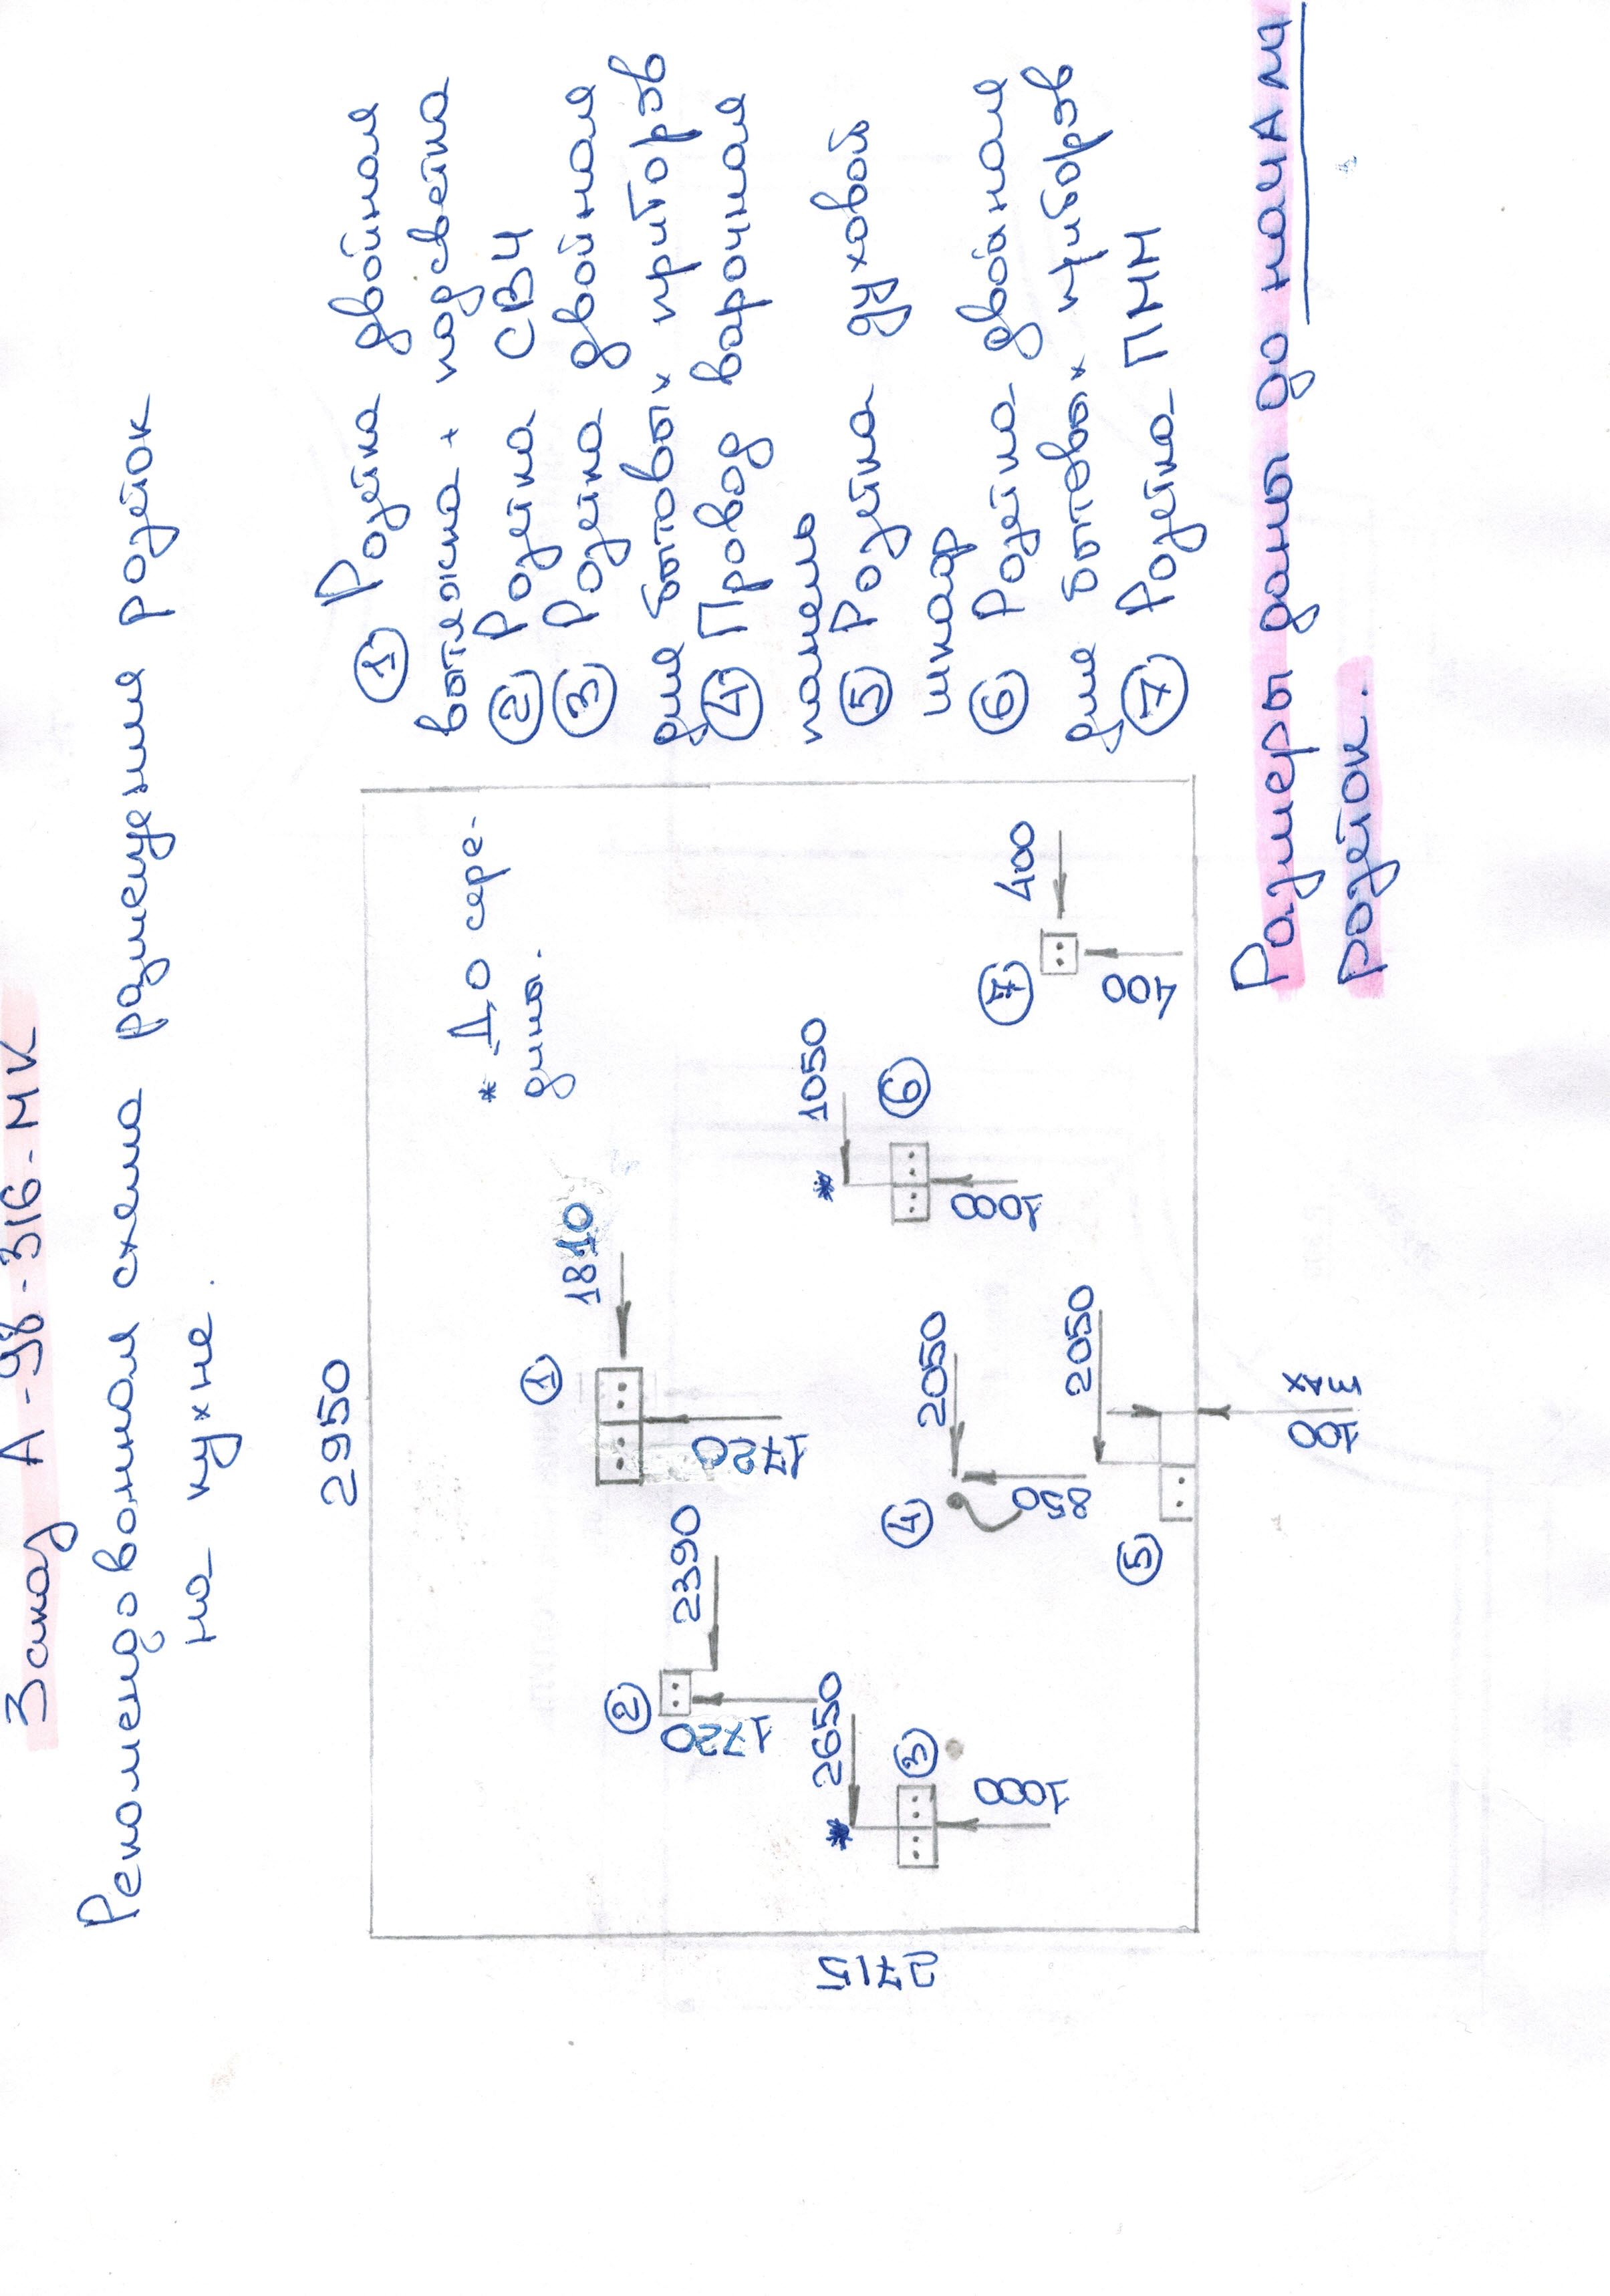 Заказ А-98-316-МК
Рекомендованная схема размещения розеток
на кухне.
2950
* До сере-
дины.
① 1810
1720
② 2390
1720
* 2650
③
1000
④ 2050
850
⑤ 2050
100 мах
* 1050
⑥
1000
⑦ 400
400
2715
① Розетка двойная
вытяжка + подсветка
② Розетка СВЧ
③ Розетка двойная
для бытовых приборов
④ Провод варочная
панель
⑤ Розетка духовой
шкаф
⑥ Розетка двойная
для бытовых приборов
⑦ Розетка ПММ
Размеры даны до начала
розеток.